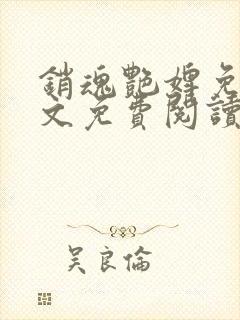 銷魂艷婢免
文免費閱讀
吴良倫